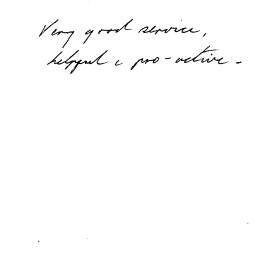 Very good service,
helpful & pro-active.